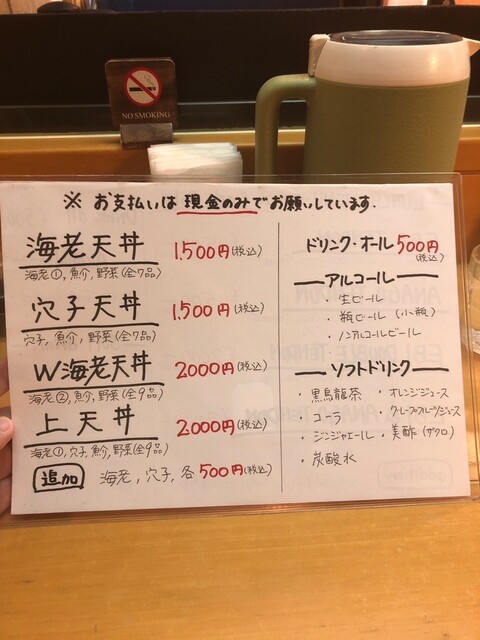 NO SMOKING
※ お支払いは現金のみでお願いしています.
海老天丼 1.500円(税込)
海老①, 魚介, 野菜(全7品)
穴子天丼 1.500円(税込)
穴子, 魚介, 野菜(全7品)
W海老天丼 2000円(税込)
海老②, 魚介, 野菜(全9品)
上天丼 2.000円(税込)
海老①, 穴子, 魚介, 野菜(全9品)
追加 海老, 穴子, 各500円(税込)
ドリンク・オール 500円(税込)
アルコール
・生ビール
・瓶ビール (小瓶)
・ノンアルコールビール
ソフトドリンク
・黒烏龍茶
・コーラ
・ジンジャエール
・炭酸水
・オレンジジュース
・グレープフルーツジュース
・美酢 (ザクロ)